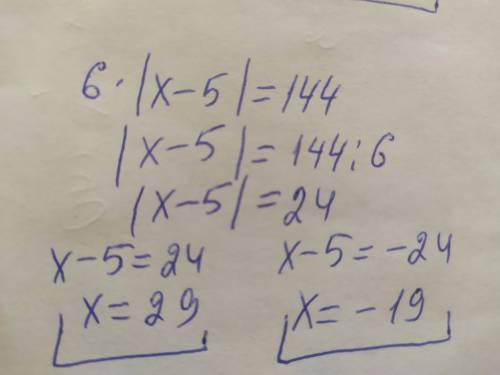 6·|x-5|=144
|x-5|=144:6
|x-5|=24
x-5=24 x-5=-24
x=29 x=-19